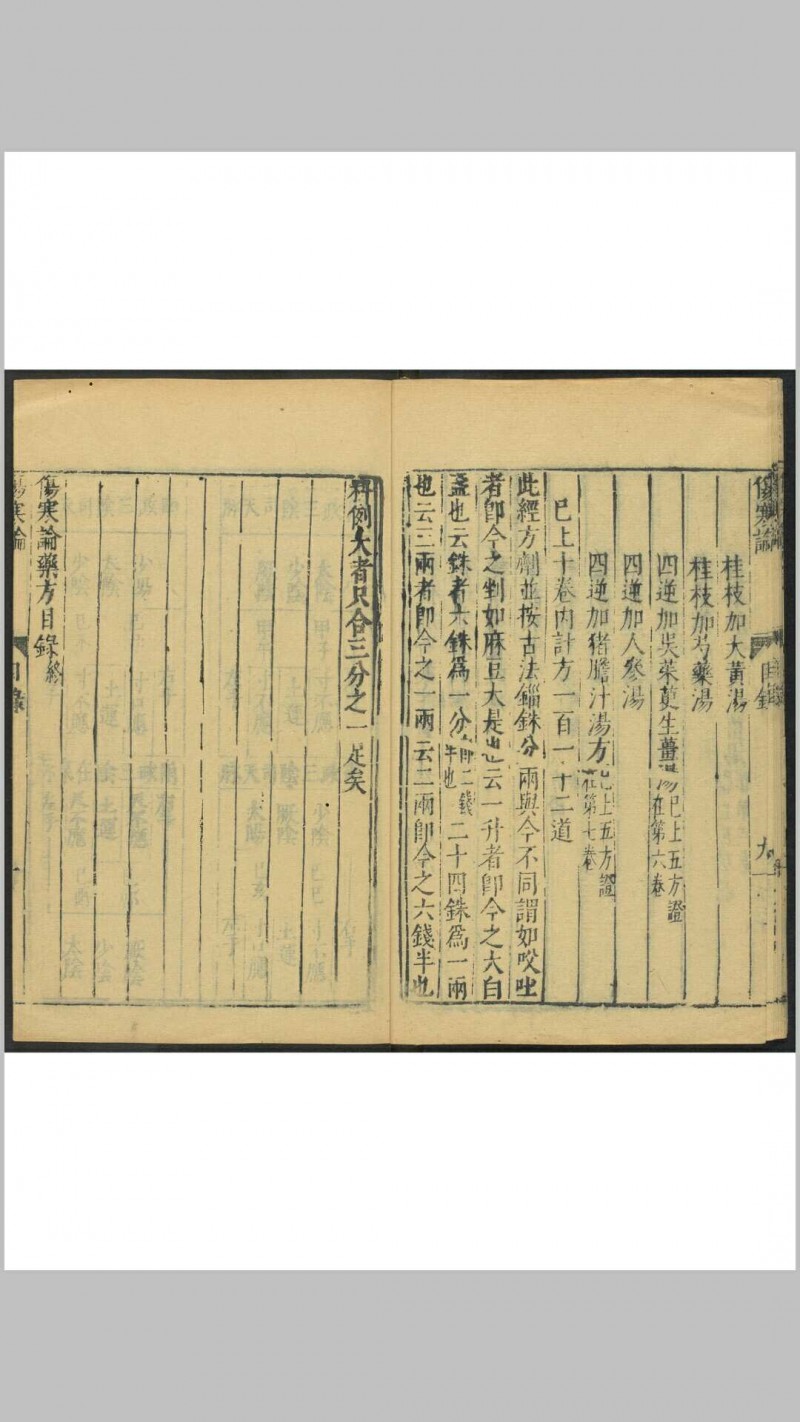 傷寒論 目錄 九
桂枝加大黃湯
桂枝加芍藥湯
四逆加吳茱萸生薑湯已上五方證在第六卷
四逆加人參湯
四逆加猪膽汁湯方已上五方證在第七卷
已上十卷內計方一百一十二道
此經方劑並按古法錙銖分兩與今不同謂如㕮咀
者卽今之剉如麻豆大是也云一升者卽今之大白
盞也云銖者六銖爲一分卽二錢半也二十四銖爲一兩
也云三兩者卽今之一兩云二兩卽今之六錢半也
料例大者只合三分之一足矣
傷寒論藥方目錄終
傷寒論 目錄